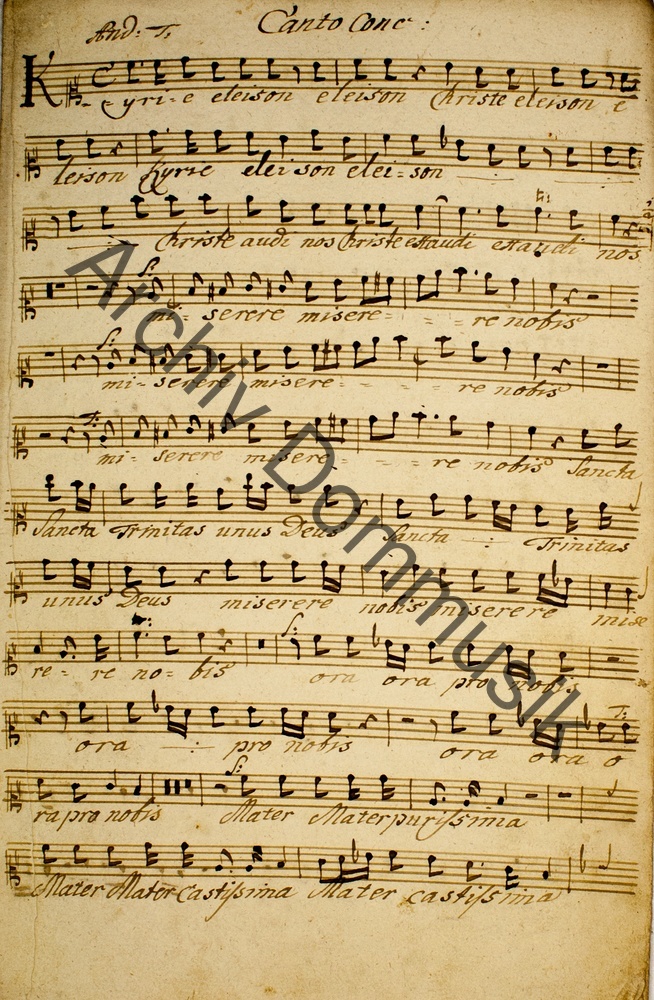 Canto Conc:
And: T.
Kyrie eleison eleison Christe eleison e
leison Kyrie eleison elei=son
Christe audi nos Christe exaudi exaudi nos
S:
mi=serere misere= = = re nobis
S:
mi=serere misere= = = re nobis
T:
mi=serere misere= = = re nobis Sancta
Sancta Trinitas unus Deus Sancta Trinitas
unus Deus miserere nobis miserere mise
re=re no=bis ora ora pro nobis
S:
ora pro nobis ora ora o
T:
ra pro nobis Mater Mater purissima
S:
Mater Mater castissima Mater castissima
Archiv Dommusik